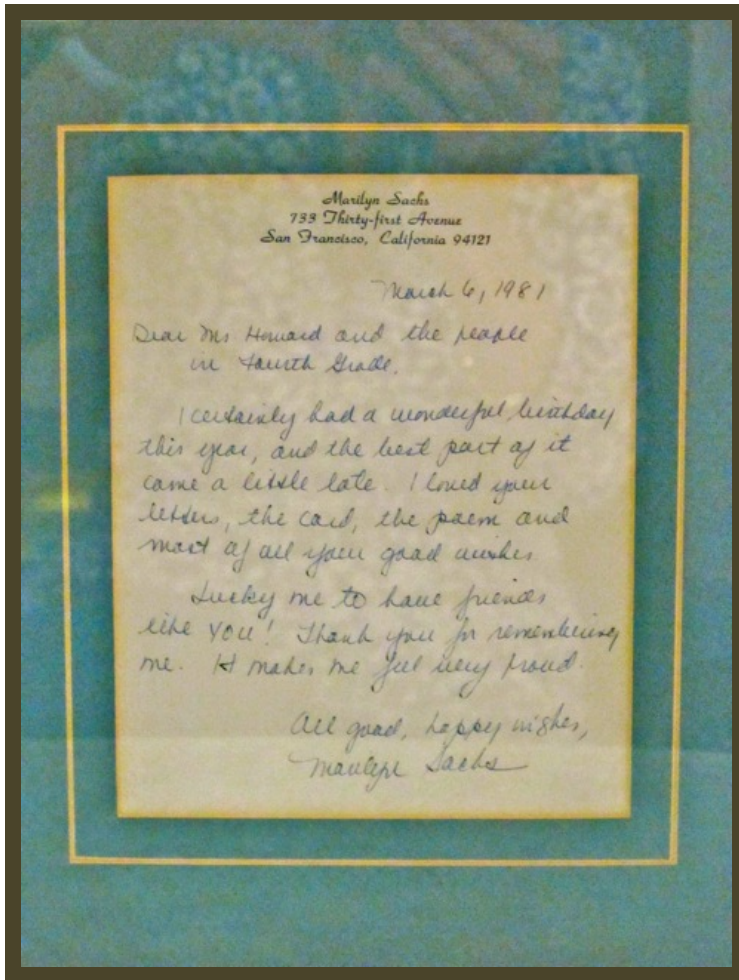 Marilyn Sachs
733 Thirty-first Avenue
San Francisco, California 94121
March 6, 1981
Dear Ms Howard and the people
in Fourth Grade,
I certainly had a wonderful birthday
this year, and the best part of it
came a little late. I loved your
letters, the card, the poem and
most of all your good wishes
Lucky me to have friends
like YOU! Thank you for remembering
me. It makes me feel very proud.
All good, happy wishes,
Marilyn Sachs